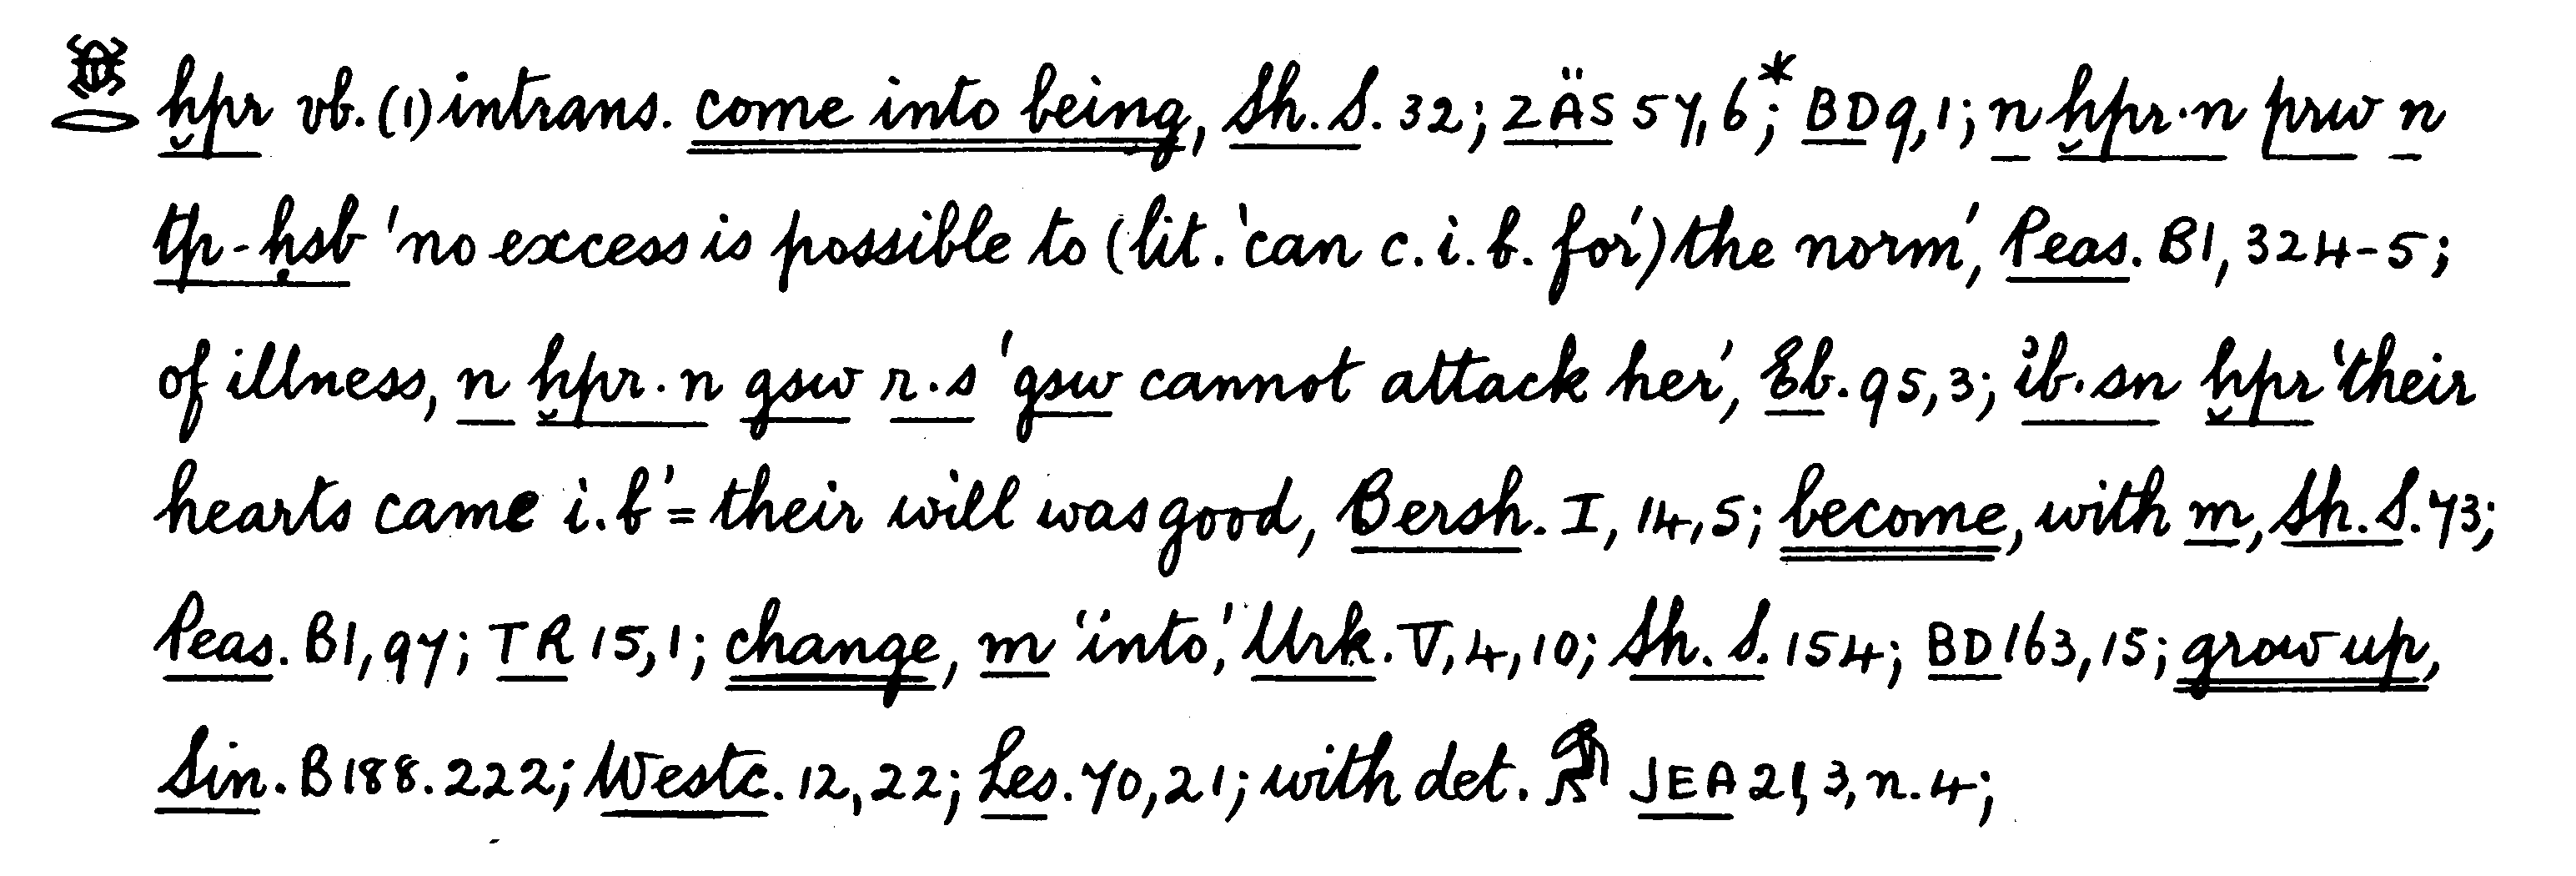 𓆣𓂋 ḫpr vb. (1) intrans. come into being, Sh. S. 32; ZÄS 57, 6*; BD 9, 1; n ḫpr·n prw n
tp-ḥsb 'no excess is possible to (lit. 'can c. i. b. for') the norm', Peas. B1, 324-5;
of illness, n ḫpr·n gsw r·s 'gsw cannot attack her', Eb. 95, 3; ib·sn ḫpr 'their
hearts came i. b' = their will was good, Bersh. I, 14, 5; become, with m, Sh. S. 73;
Peas. B1, 97; TR 15, 1; change, m 'into,' Urk. V, 4, 10; Sh. S. 154; BD 163, 15; grow up,
Sin. B 188. 222; Westc. 12, 22; Les. 70, 21; with det. JEA 21, 3, n. 4;